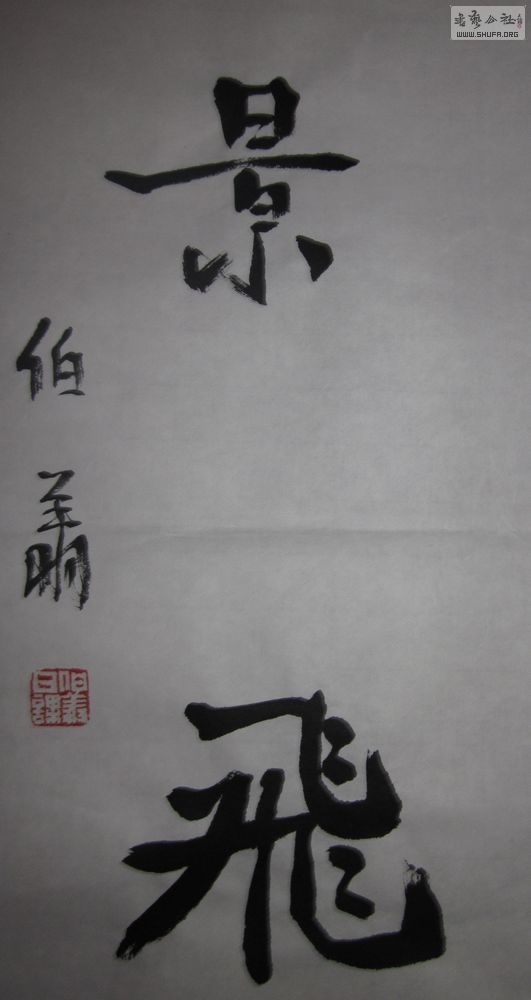 書藝公社
WWW.SHUFA.ORG
景飛
伯